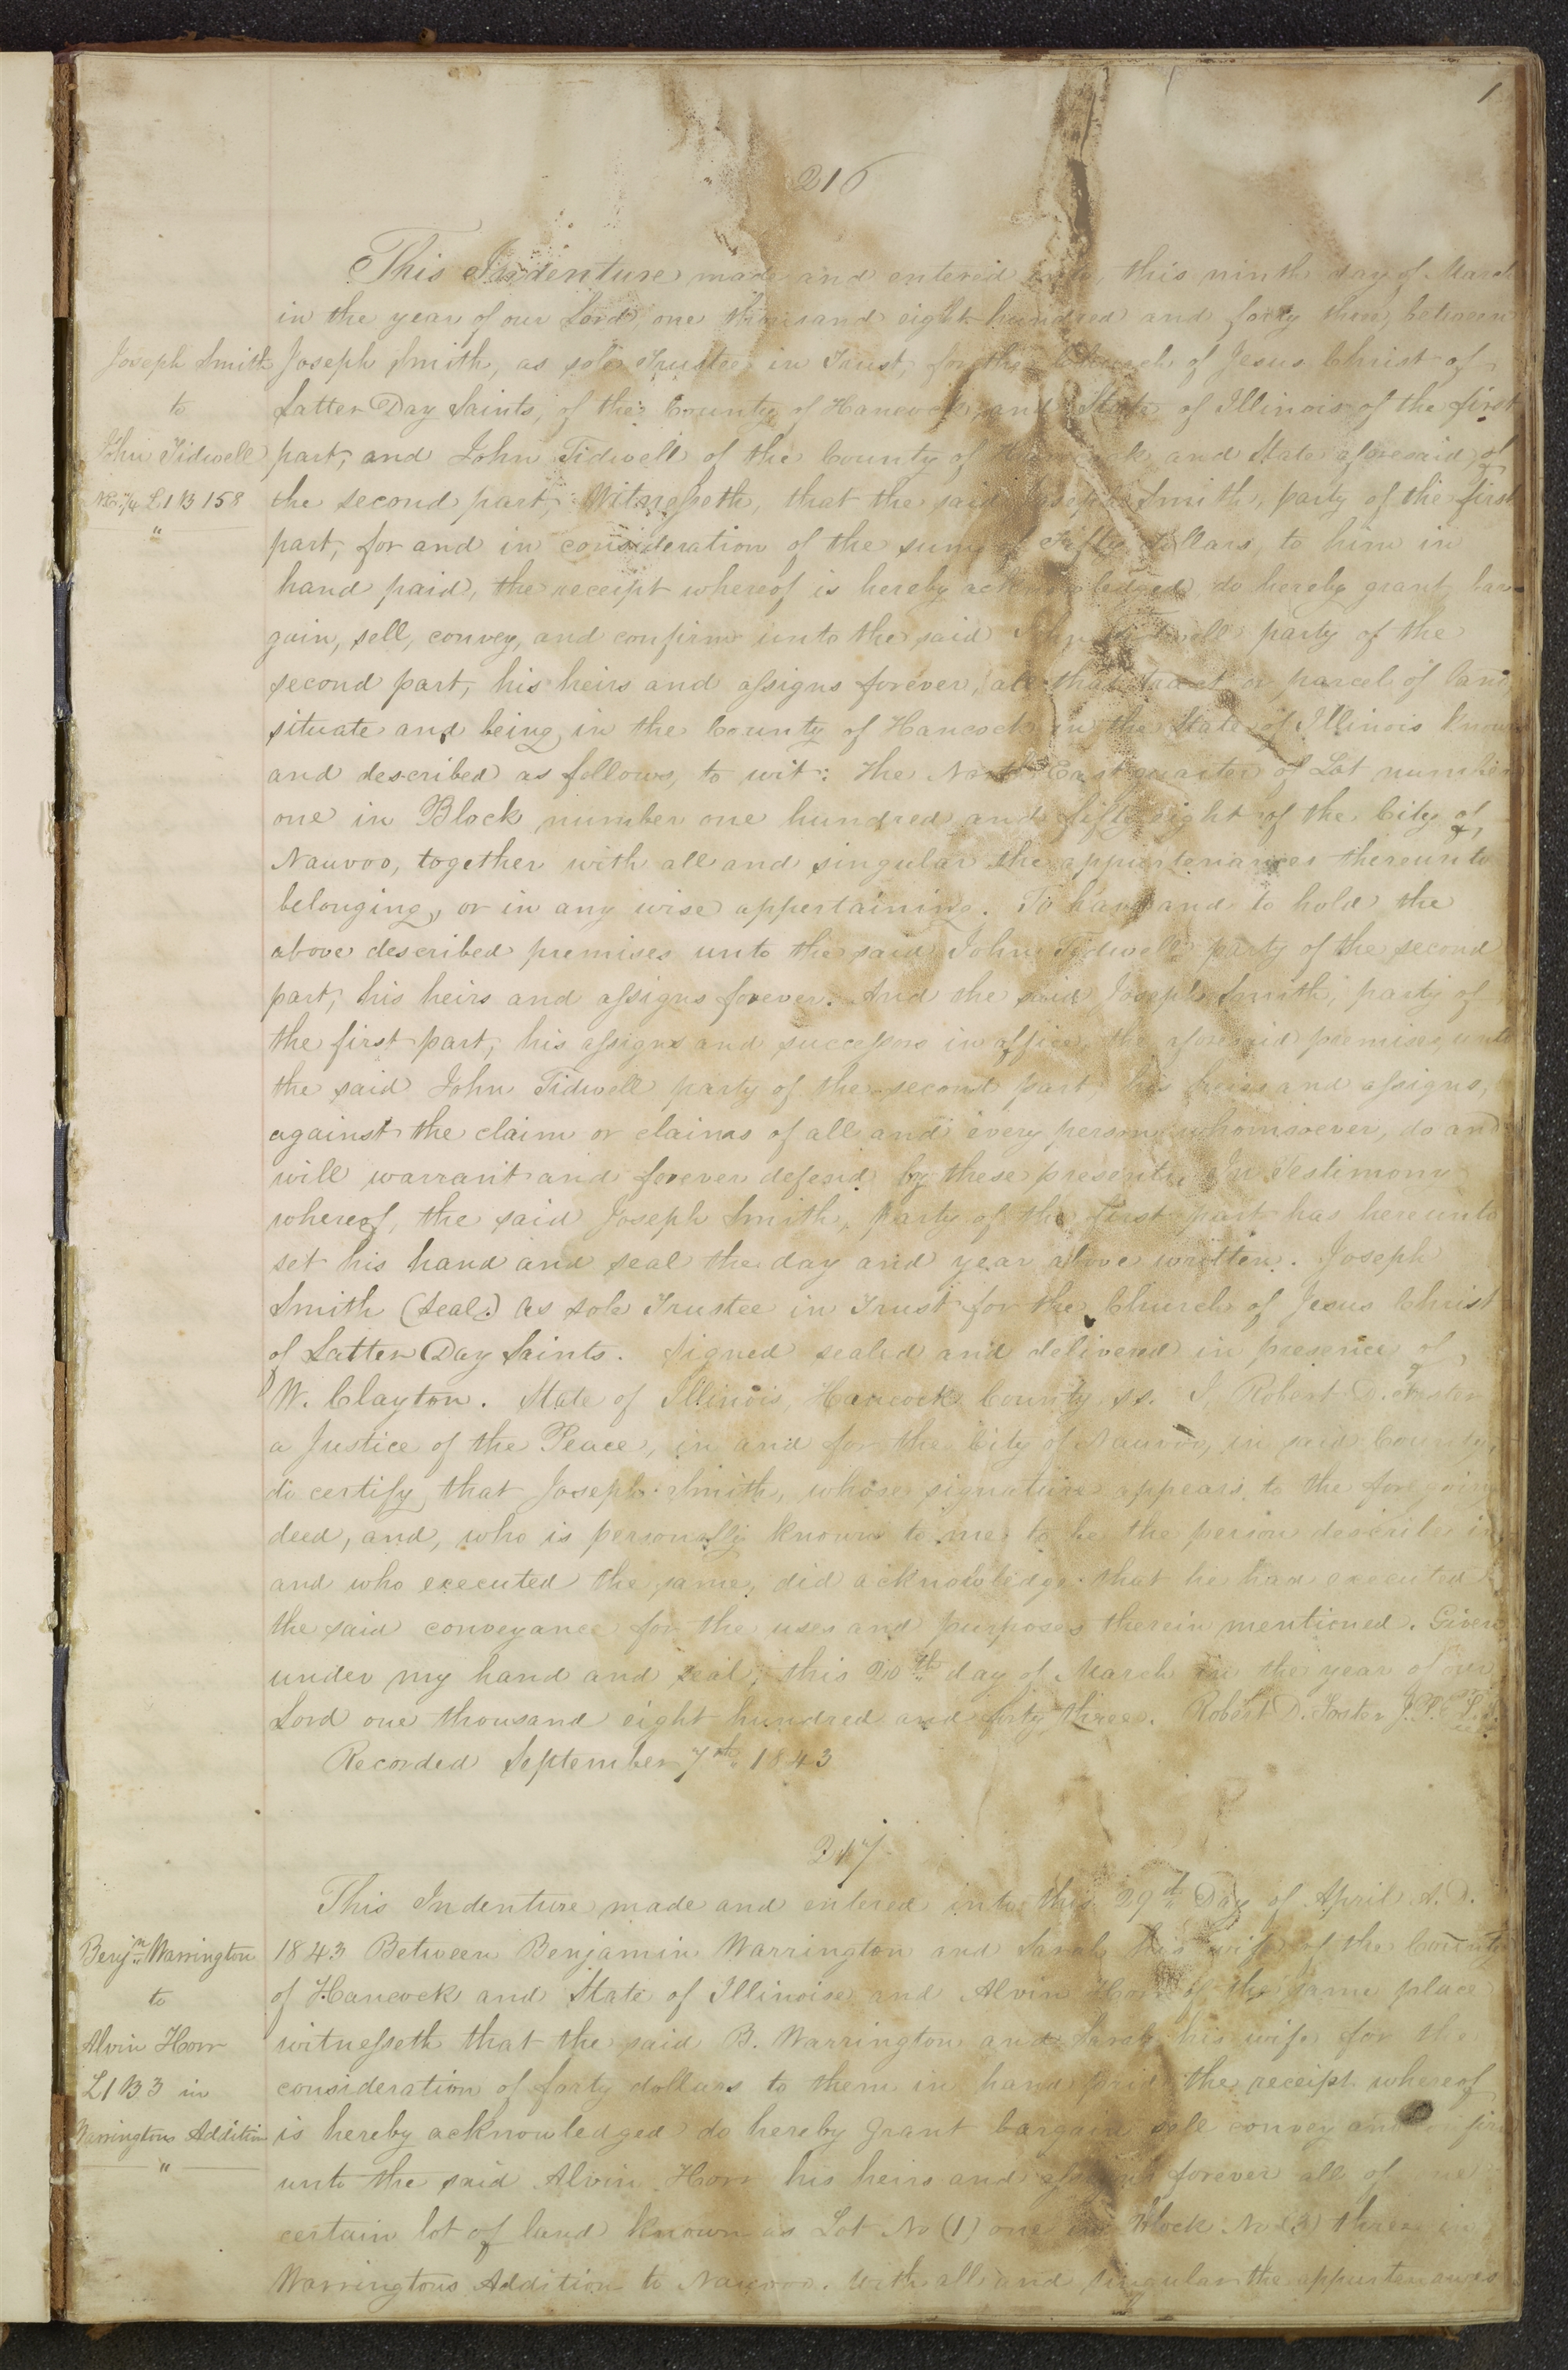 1
216
This Indenture made and entered into, this ninth day of March
in the year of our Lord, one thousand eight hundred and forty three, between
Joseph Smith
to
John Tidwell
NE 1/4 L1 B 158
"
Joseph Smith, as sole Trustee in Trust, for the Church of Jesus Christ of
Latter Day Saints, of the County of Hancock, and State of Illinois of the first
part, and John Tidwell of the County of Hancock and State aforesaid, of
the second part, Witnesseth, that the said Joseph Smith, party of the first
part, for and in consideration of the sum of Fifty dollars, to him in
hand paid, the receipt whereof is hereby acknowledged, do hereby grant, bar-
gain, sell, convey, and confirm unto the said John Tidwell party of the
second part, his heirs and assigns forever, all that tract or parcel of land
situate and being, in the County of Hancock in the State of Illinois known
and described as follows, to wit: The North East quarter of Lot number
one in Block number one hundred and fifty eight of the City of
Nauvoo, together with all and singular the appurtenances thereunto
belonging, or in any wise appertaining. To have and to hold the
above described premises unto the said John Tidwell party of the second
part, his heirs and assigns forever. And the said Joseph Smith, party of
the first part, his assigns and successors in office, the aforesaid premises, unto
the said John Tidwell party of the second part, his heirs and assigns,
against the claim or claims of all and every person whomsoever, do and
will warrant and forever defend by these presents. In Testimony
whereof, the said Joseph Smith, party of the first part has hereunto
set his hand and seal the day and year above written. Joseph
Smith (Seal.) As sole Trustee in Trust for the Church of Jesus Christ
of Latter Day Saints. Signed sealed and delivered in presence of
W. Clayton. State of Illinois, Hancock County ss. I, Robert D. Foster
a Justice of the Peace, in and for the City of Nauvoo, in said County,
do certify, that Joseph Smith, whose signature appears to the foregoing
deed, and, who is personally known to me to be the person described in
and who executed the same, did acknowledge that he had executed
the said conveyance for the uses and purposes therein mentioned. Given
under my hand and seal, this 20th day of March in the year of our
Lord one thousand eight hundred and forty three. Robert D. Foster J.P.
Recorded September 7th 1843
217
This Indenture made and entered into this 29th Day of April A.D.
Benjn Warrington
to
Alvin Horr
L1 B3 in
Warringtons Addition
"
1843 Between Benjamin Warrington and Sarah his wife of the County
of Hancock and State of Illinoise and Alvin Horr of the same place
witnesseth that the said B. Warrington and Sarah his wife for the
consideration of forty dollars to them in hand paid the receipt whereof
is hereby acknowledged do hereby grant bargain sell convey and confirm
unto the said Alvin Horr his heirs and assigns forever all of one
certain lot of land known as Lot No (1) one in Block No (3) three in
Warringtons Addition to Nauvoo. With all and singular the appurtenances